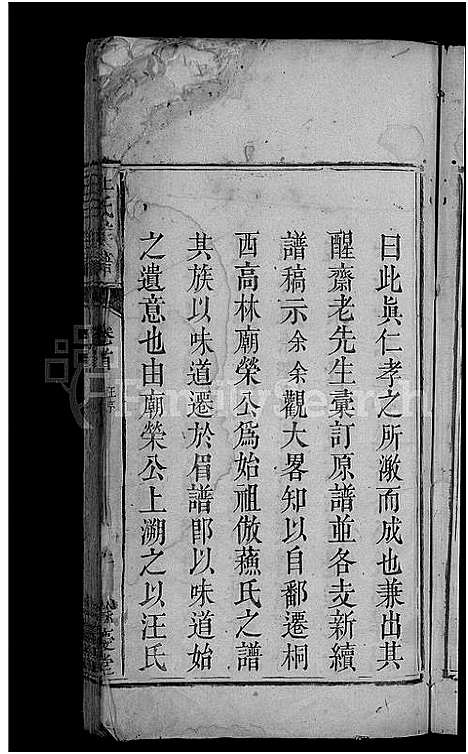 曰此眞仁孝之所激而成也兼出其
醒齋老先生彚訂原譜並各支新續
譜稿示余余觀大畧知以自鄱遷桐
西高林廟榮公爲始祖倣蘓氏之譜
其族以味道遷於眉譜卽以味道始
之遺意也由廟榮公上溯之以汪氏
氏宗譜
卷首
FamilySearch